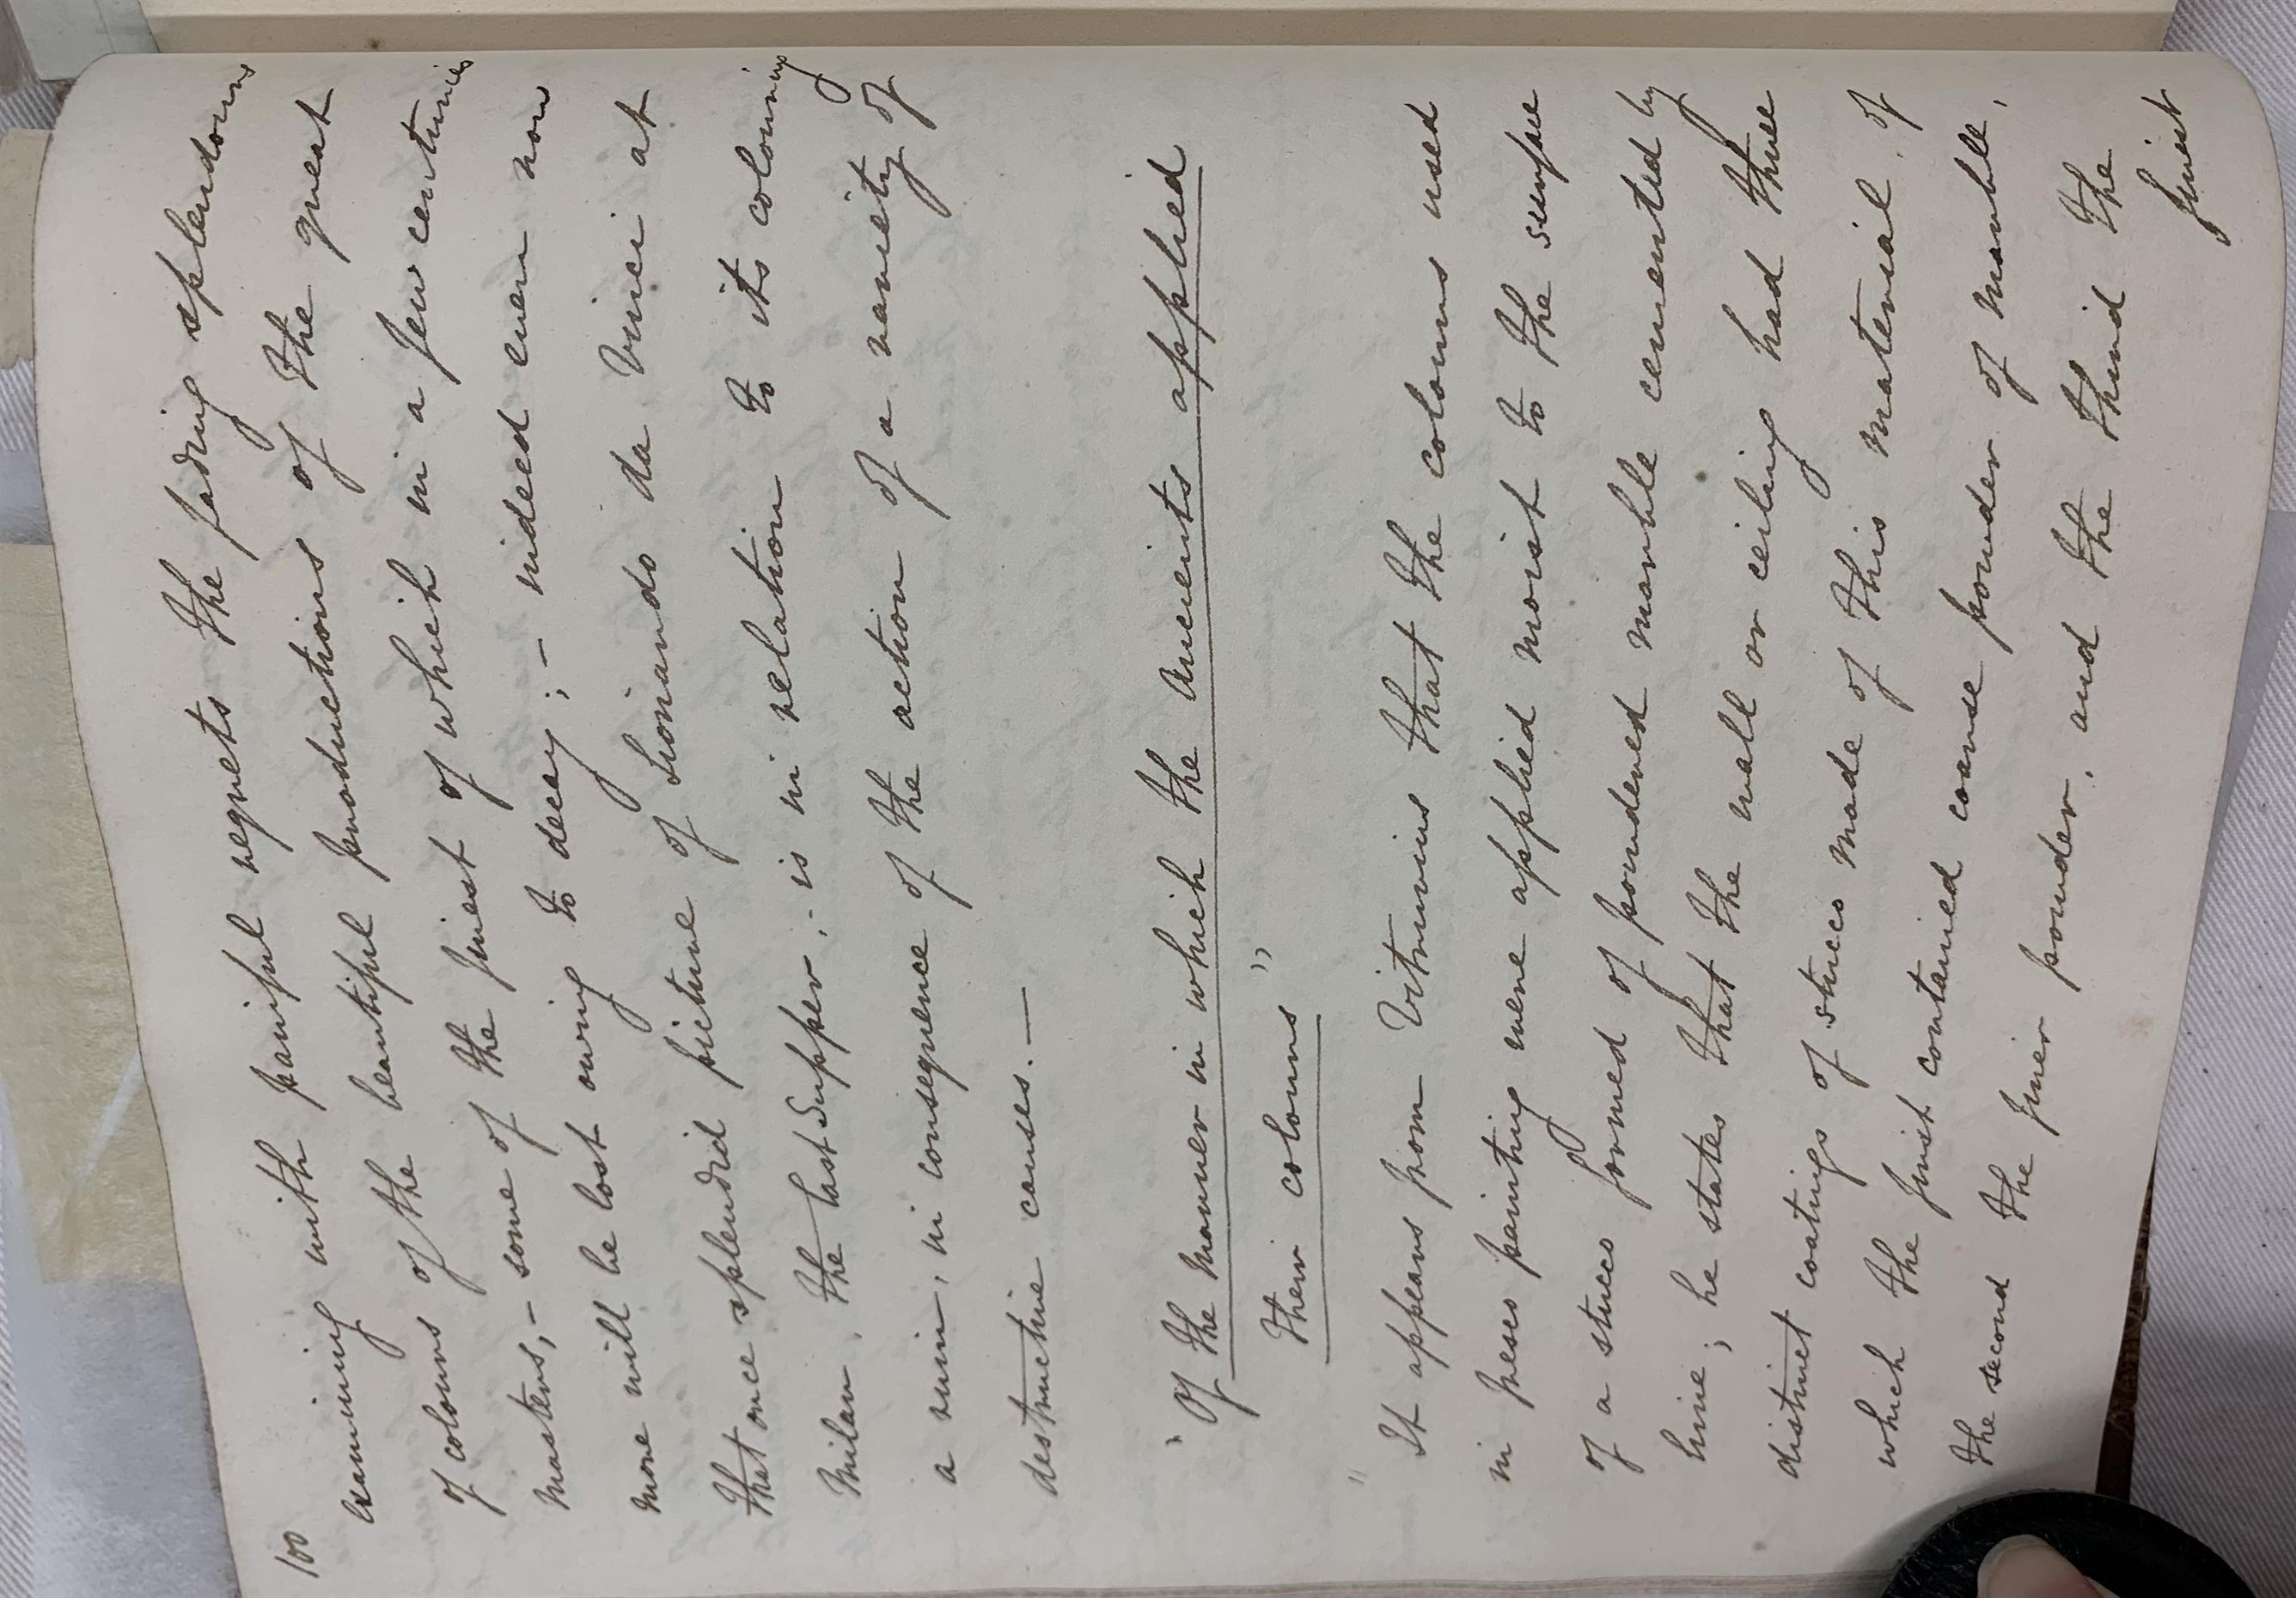 100
examining with painful regrets the fading splendours
of the beautiful productions of the great
of colours of the finest of which in a few centuries
masters,- some of the finest of which in a few centuries
more will be lost owing to decay; - indeed even now
that once splendid picture of Lionardo da Vinci at
Milan, the last Supper, is in relation to its colouring
a ruin, in consequence of the action of a variety of
destructive causes. —
"Of the manner in which the Ancients applied
their colours"
" It appears from Vitruvius that the colours used
in fresco painting were applied moist to the surface
of a stucco formed of powdered marble cemented by
lime; he states that the wall or ceiling had three
distinct coatings of stucco made of this material, of
which the first contained coarse powder of marble,
the second the finer powder, and the third the
finest